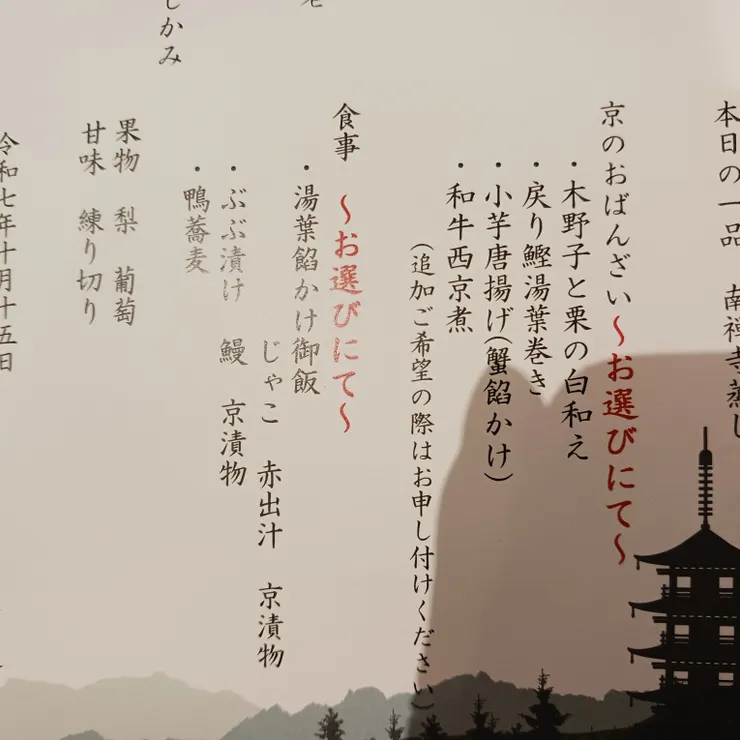 本日の一品　南禅寺蒸し
京のおばんざい～お選びにて～
・木野子と栗の白和え
・戻り鰹湯葉巻き
・小芋唐揚げ(蟹餡かけ)
・和牛西京煮
(追加ご希望の際はお申し付けください)
食事　～お選びにて～
・湯葉餡かけ御飯
じゃこ　赤出汁　京漬物
・ぶぶ漬け　鰻　京漬物
・鴨蕎麦
しかみ
果物　梨　葡萄
甘味　練り切り
令和七年十月十五日